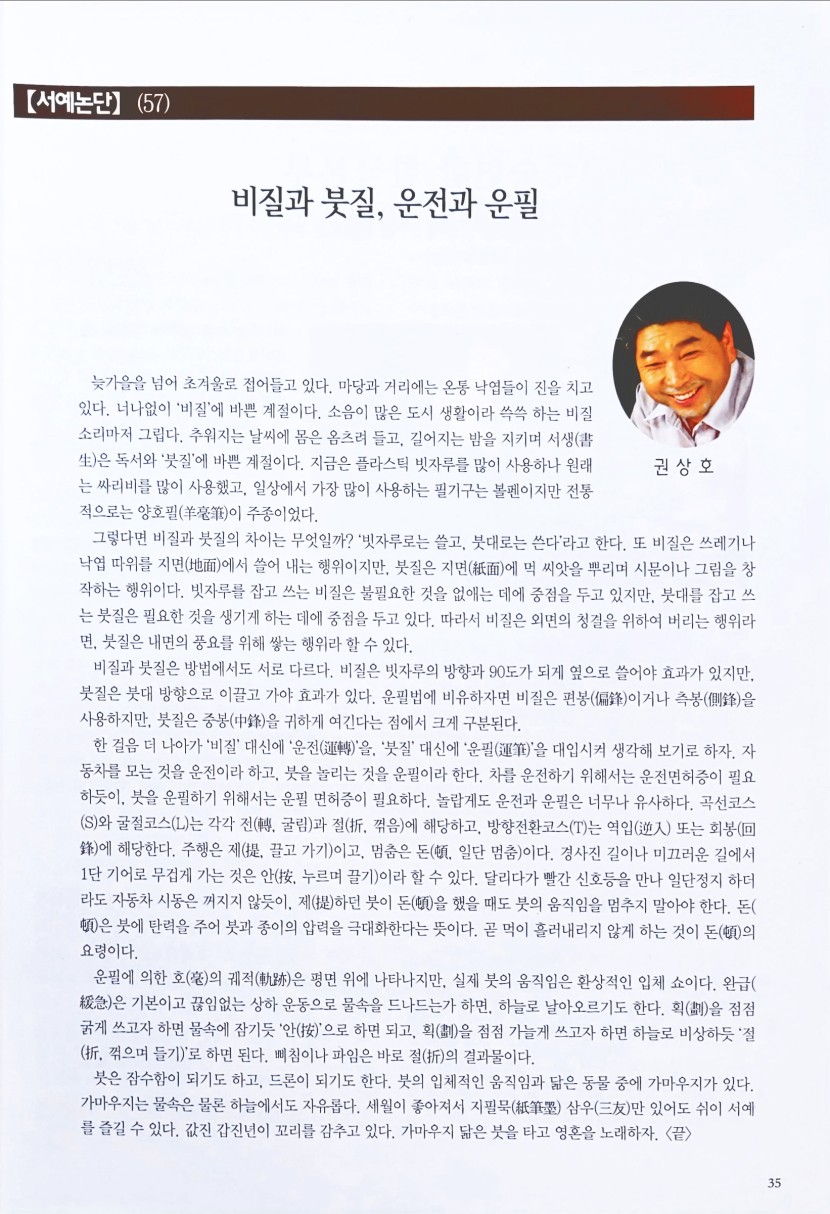 【서예논단】 (57)
비질과 붓질, 운전과 운필
늦가을을 넘어 초겨울로 접어들고 있다. 마당과 거리에는 온통 낙엽들이 진을 치고
있다. 너나없이 ‘비질’에 바쁜 계절이다. 소음이 많은 도시 생활이라 쓱쓱 하는 비질
소리마저 그립다. 추워지는 날씨에 몸은 옴츠려 들고, 길어지는 밤을 지키며 서생(書
生)은 독서와 ‘붓질’에 바쁜 계절이다. 지금은 플라스틱 빗자루를 많이 사용하나 원래
는 싸리비를 많이 사용했고, 일상에서 가장 많이 사용하는 필기구는 볼펜이지만 전통
적으로는 양호필(羊毫筆)이 주종이었다.
권 상 호
그렇다면 비질과 붓질의 차이는 무엇일까? ‘빗자루로는 쓸고, 붓대로는 쓴다’라고 한다. 또 비질은 쓰레기나
낙엽 따위를 지면(地面)에서 쓸어 내는 행위이지만, 붓질은 지면(紙面)에 먹 씨앗을 뿌리며 시문이나 그림을 창
작하는 행위이다. 빗자루를 잡고 쓰는 비질은 불필요한 것을 없애는 데에 중점을 두고 있지만, 붓대를 잡고 쓰
는 붓질은 필요한 것을 생기게 하는 데에 중점을 두고 있다. 따라서 비질은 외면의 청결을 위하여 버리는 행위라
면, 붓질은 내면의 풍요를 위해 쌓는 행위라 할 수 있다.
비질과 붓질은 방법에서도 서로 다르다. 비질은 빗자루의 방향과 90도가 되게 옆으로 쓸어야 효과가 있지만,
붓질은 붓대 방향으로 이끌고 가야 효과가 있다. 운필법에 비유하자면 비질은 편봉(偏鋒)이거나 측봉(側鋒)을
사용하지만, 붓질은 중봉(中鋒)을 귀하게 여긴다는 점에서 크게 구분된다.
한 걸음 더 나아가 ‘비질’ 대신에 ‘운전(運轉)’을, ‘붓질’ 대신에 ‘운필(運筆)’을 대입시켜 생각해 보기로 하자. 자
동차를 모는 것을 운전이라 하고, 붓을 놀리는 것을 운필이라 한다. 차를 운전하기 위해서는 운전면허증이 필요
하듯이, 붓을 운필하기 위해서는 운필 면허증이 필요하다. 놀랍게도 운전과 운필은 너무나 유사하다. 곡선코스
(S)와 굴절코스(L)는 각각 전(轉, 굴림)과 절(折, 꺾음)에 해당하고, 방향전환코스(T)는 역입(逆入) 또는 회봉(回
鋒)에 해당한다. 주행은 제(提, 끌고 가기)이고, 멈춤은 돈(頓, 일단 멈춤)이다. 경사진 길이나 미끄러운 길에서
1단 기어로 무겁게 가는 것은 안(按, 누르며 끌기)이라 할 수 있다. 달리다가 빨간 신호등을 만나 일단정지 하더
라도 자동차 시동은 꺼지지 않듯이, 제(提)하던 붓이 돈(頓)을 했을 때도 붓의 움직임을 멈추지 말아야 한다. 돈(
頓)은 붓에 탄력을 주어 붓과 종이의 압력을 극대화한다는 뜻이다. 곧 먹이 흘러내리지 않게 하는 것이 돈(頓)의
요령이다.
운필에 의한 호(毫)의 궤적(軌跡)은 평면 위에 나타나지만, 실제 붓의 움직임은 환상적인 입체 쇼이다. 완급(
緩急)은 기본이고 끊임없는 상하 운동으로 물속을 드나드는가 하면, 하늘로 날아오르기도 한다. 획(劃)을 점점
굵게 쓰고자 하면 물속에 잠기듯 ‘안(按)’으로 하면 되고, 획(劃)을 점점 가늘게 쓰고자 하면 하늘로 비상하듯 ‘절
(折, 꺾으며 들기)’로 하면 된다. 삐침이나 파임은 바로 절(折)의 결과물이다.
붓은 잠수함이 되기도 하고, 드론이 되기도 한다. 붓의 입체적인 움직임과 닮은 동물 중에 가마우지가 있다.
가마우지는 물속은 물론 하늘에서도 자유롭다. 세월이 좋아져서 지필묵(紙筆墨) 삼우(三友)만 있어도 쉬이 서예
를 즐길 수 있다. 값진 갑진년이 꼬리를 감추고 있다. 가마우지 닮은 붓을 타고 영혼을 노래하자. 〈끝〉
35